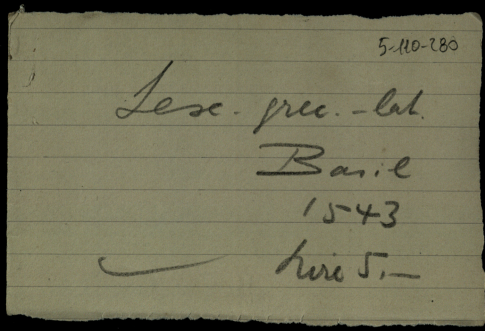 5-110-280
Lex. grec. - lat.
Basil
1543
Lire 5.—